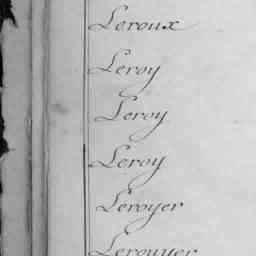 Leroux
Leroy
Leroy
Leroy
Leroyer
Lerouyer